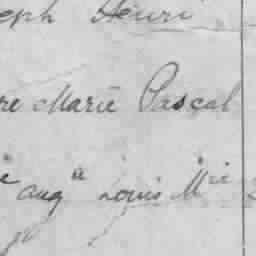 eph Henri
re Marie Pascal
e aug a Louis Mrie